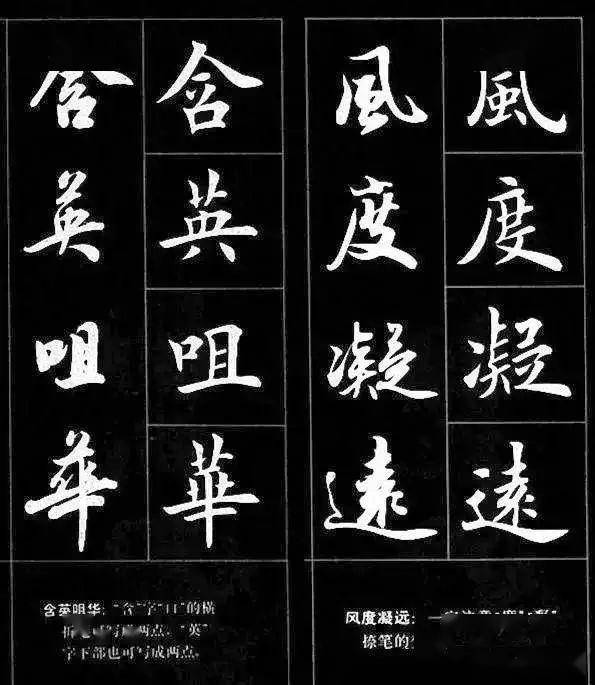 風度凝遠
風度凝遠
风度凝远:
捺笔的
含英咀華
含英咀華
含英咀华:"含"字"口"的横
可写成两点,"英"
字下部也可写成两点。